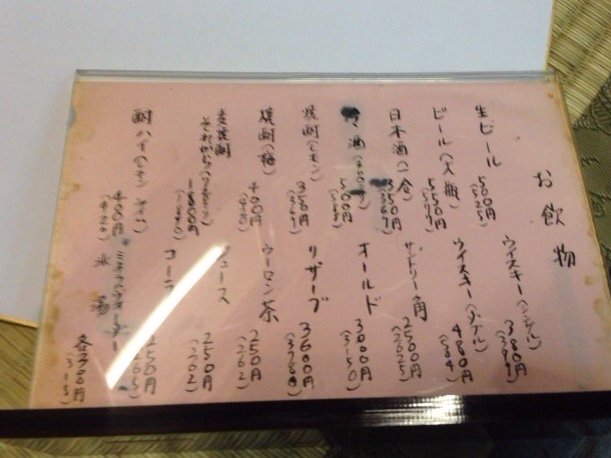 お飲物
生ビール 500円 (525)
ビール(大瓶) 550円 (577)
日本酒(一合) 350円 (367)
酒 500円 (525)
焼酎(レモン) 350円 (367)
焼酎(梅) 400円 (420)
麦焼酎 それから 1800円
酎ハイ(レモン 400円 (420)
ウイスキー(シングル) 380円 (399)
ウイスキー(ダブル) 480円 (504)
サントリー角 2500円 (2625)
オールド 3000円 (3150)
リザーブ 3600円 (3780)
ウーロン茶 250円 (262)
ジュース 250円 (262)
コーラ 250円
ミネラルウォーター
氷 各300円 (315)